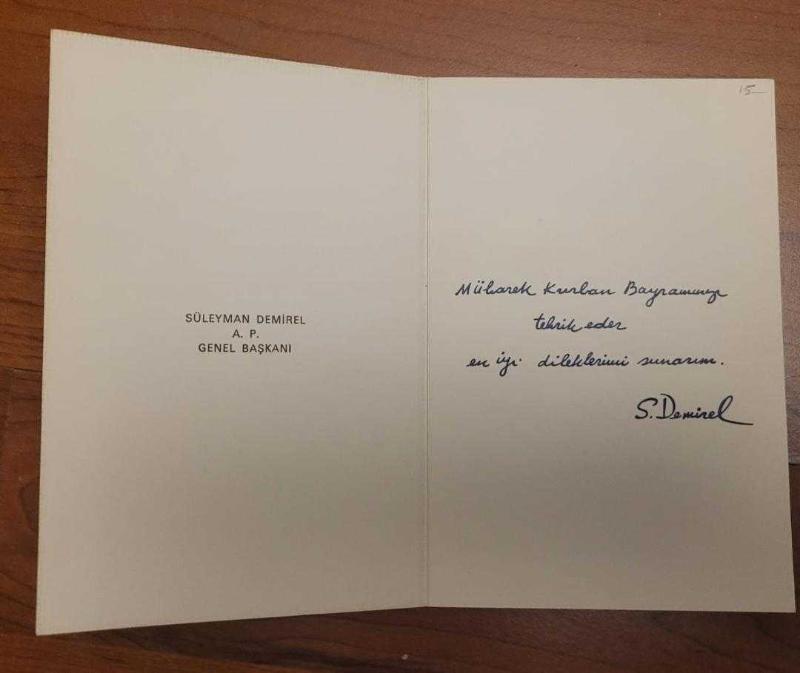 SÜLEYMAN DEMİREL
A. P.
GENEL BAŞKANI
15—
Mübarek Kurban Bayramınızı
tebrik eder
en iyi dileklerimi sunarım.
S. Demirel